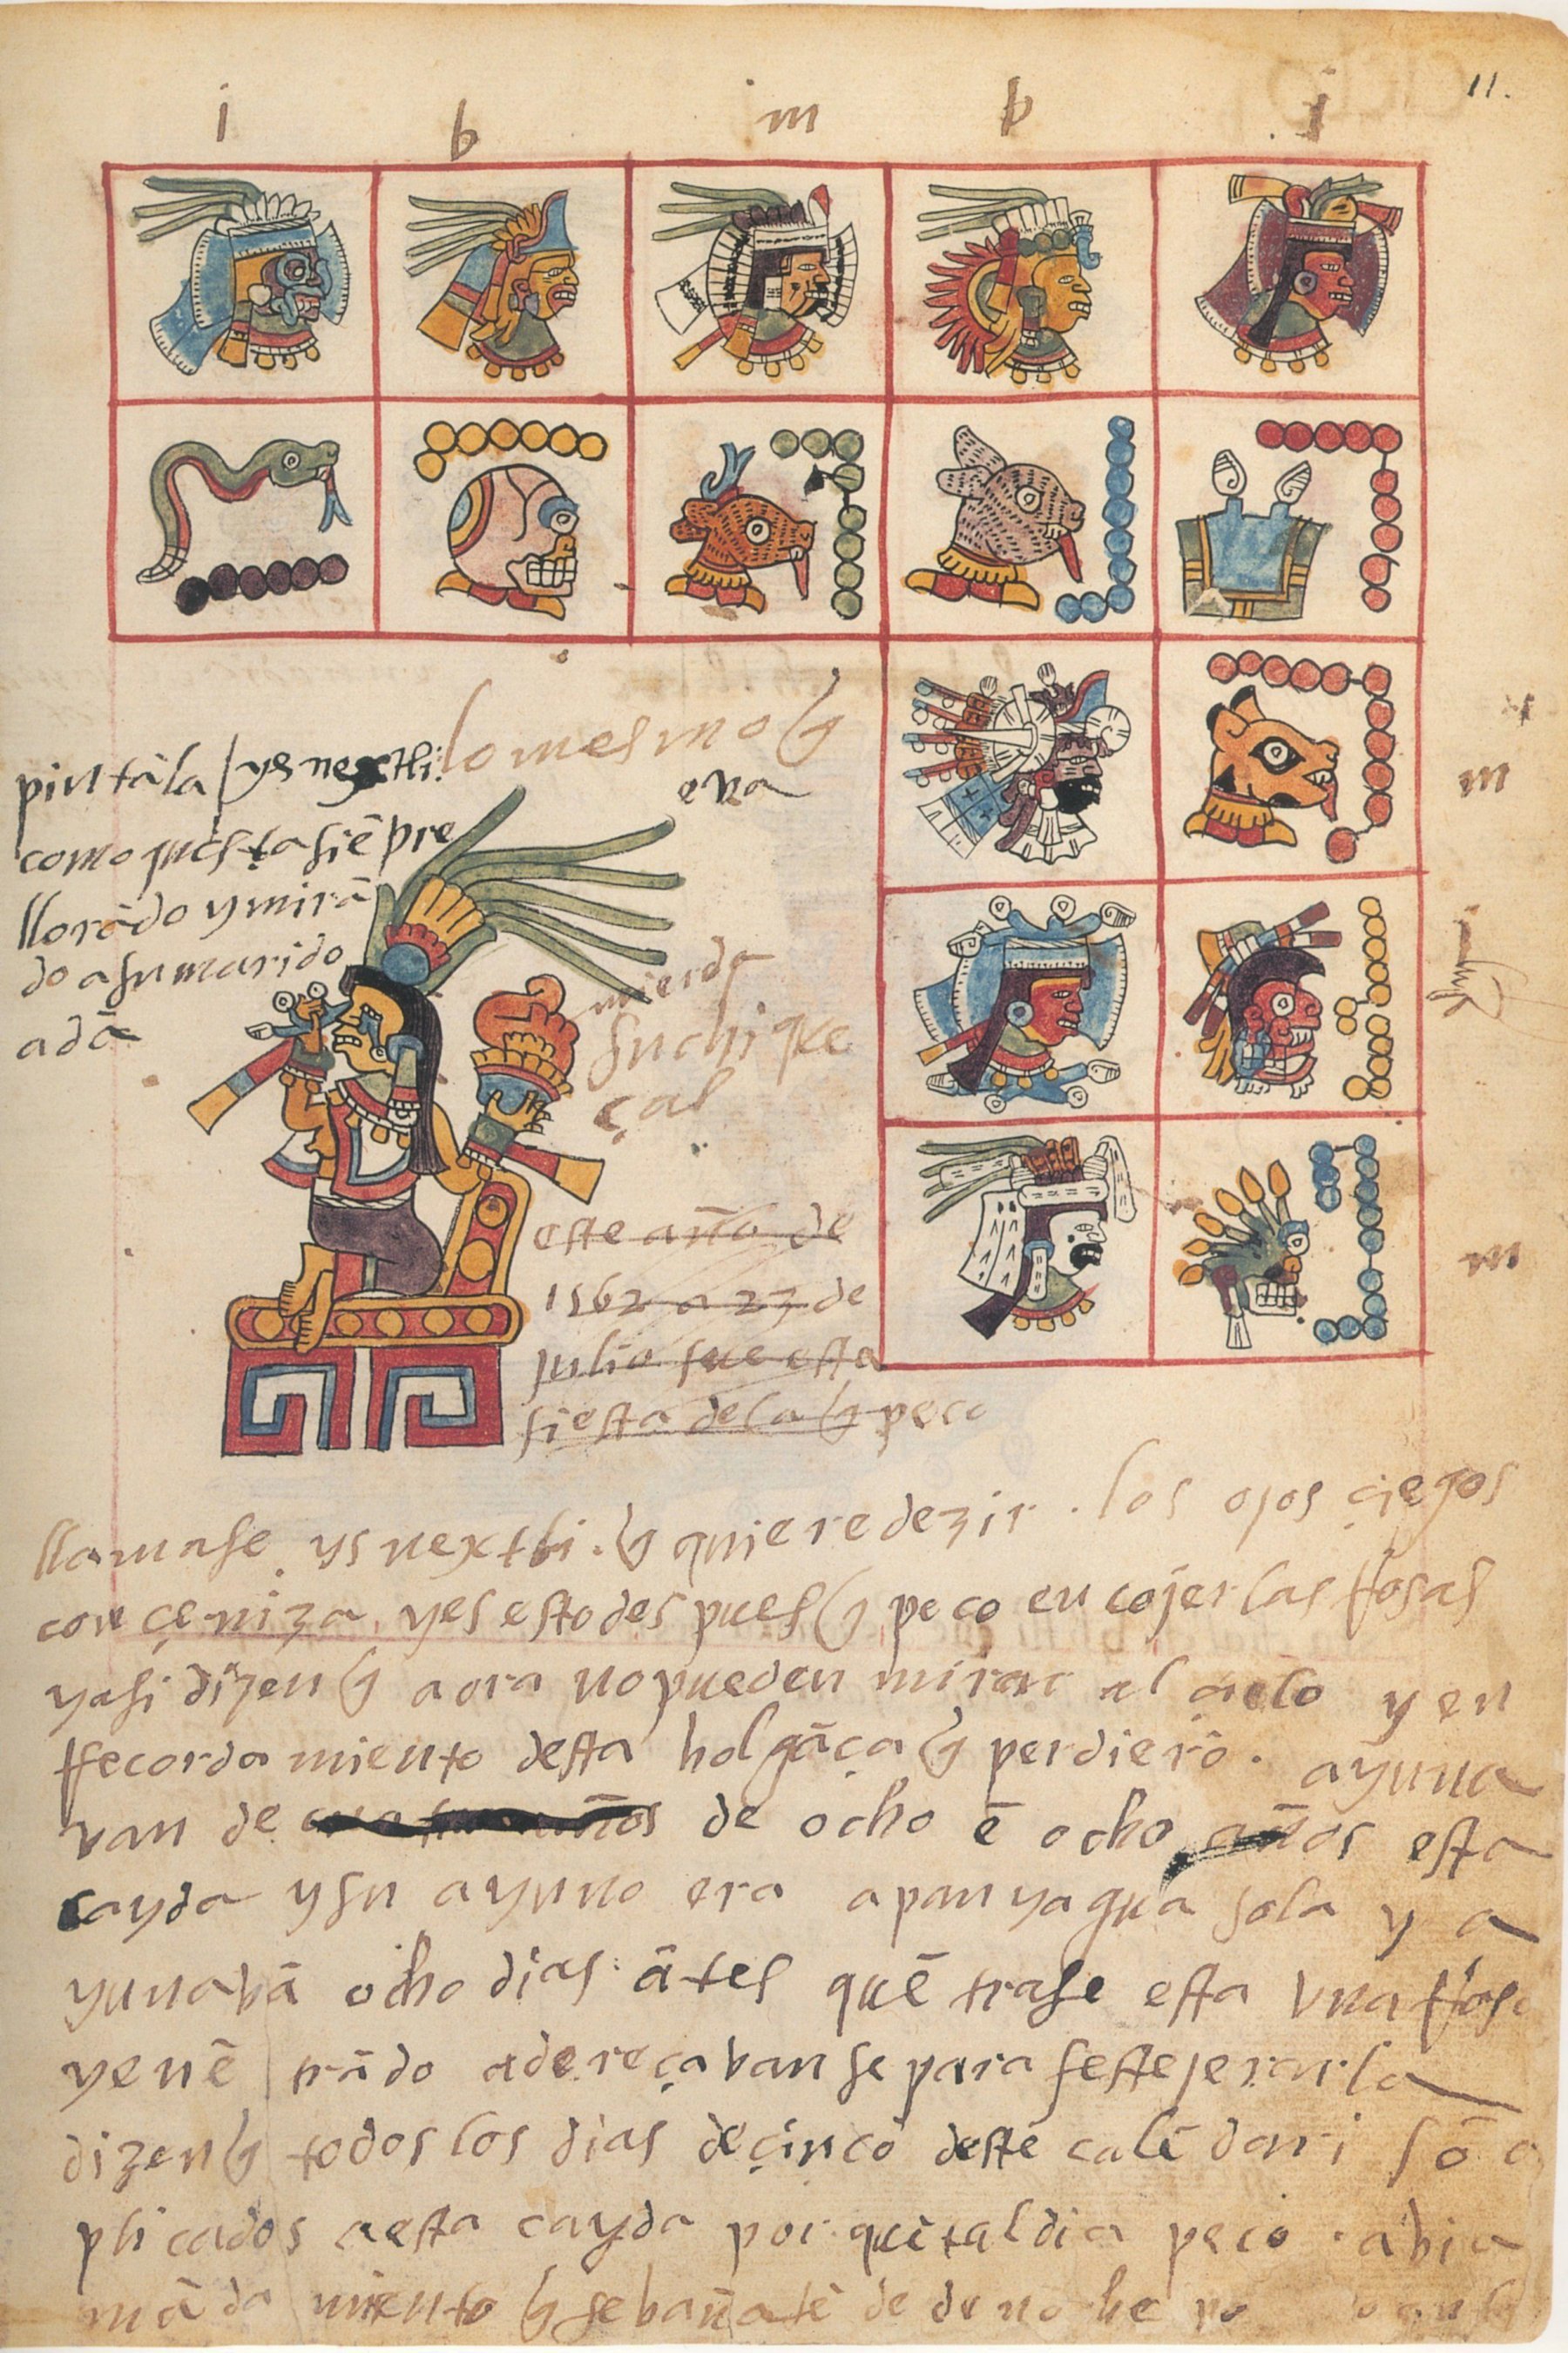 11.
i b m b i
lo mesmo q̃
eva
pintāla ysnextli
como questa siēpre
llorādo y mirā
do a su marido
adā
mierda
suchique
çal
m
este año de
1562 a 23 de
julio fue esta
fiesta de la q̃ peco
m
llamase . ysnextli . q̃ quiere dezir . los ojos çiegos
con çeniza . y es esto despues q̃ peco en cojer las rrosas
y asi dizen q̃ aora no pueden mirar al çielo y en
rrecordamiento desta holgāça q̃ perdierō . ayuna
van de de ocho ē ocho años esta
cayda y su ayuno era a pan y agua sola y a
yunavā ocho dias ātes quē trase esta una rrosa
y enē trādo adereçavanse para festejerarla
dizen q̃ todos los dias de çinco deste calēdari sō a
plicados a esta cayda porque tal dia peco . abia
māda miento q̃ se bañatē de